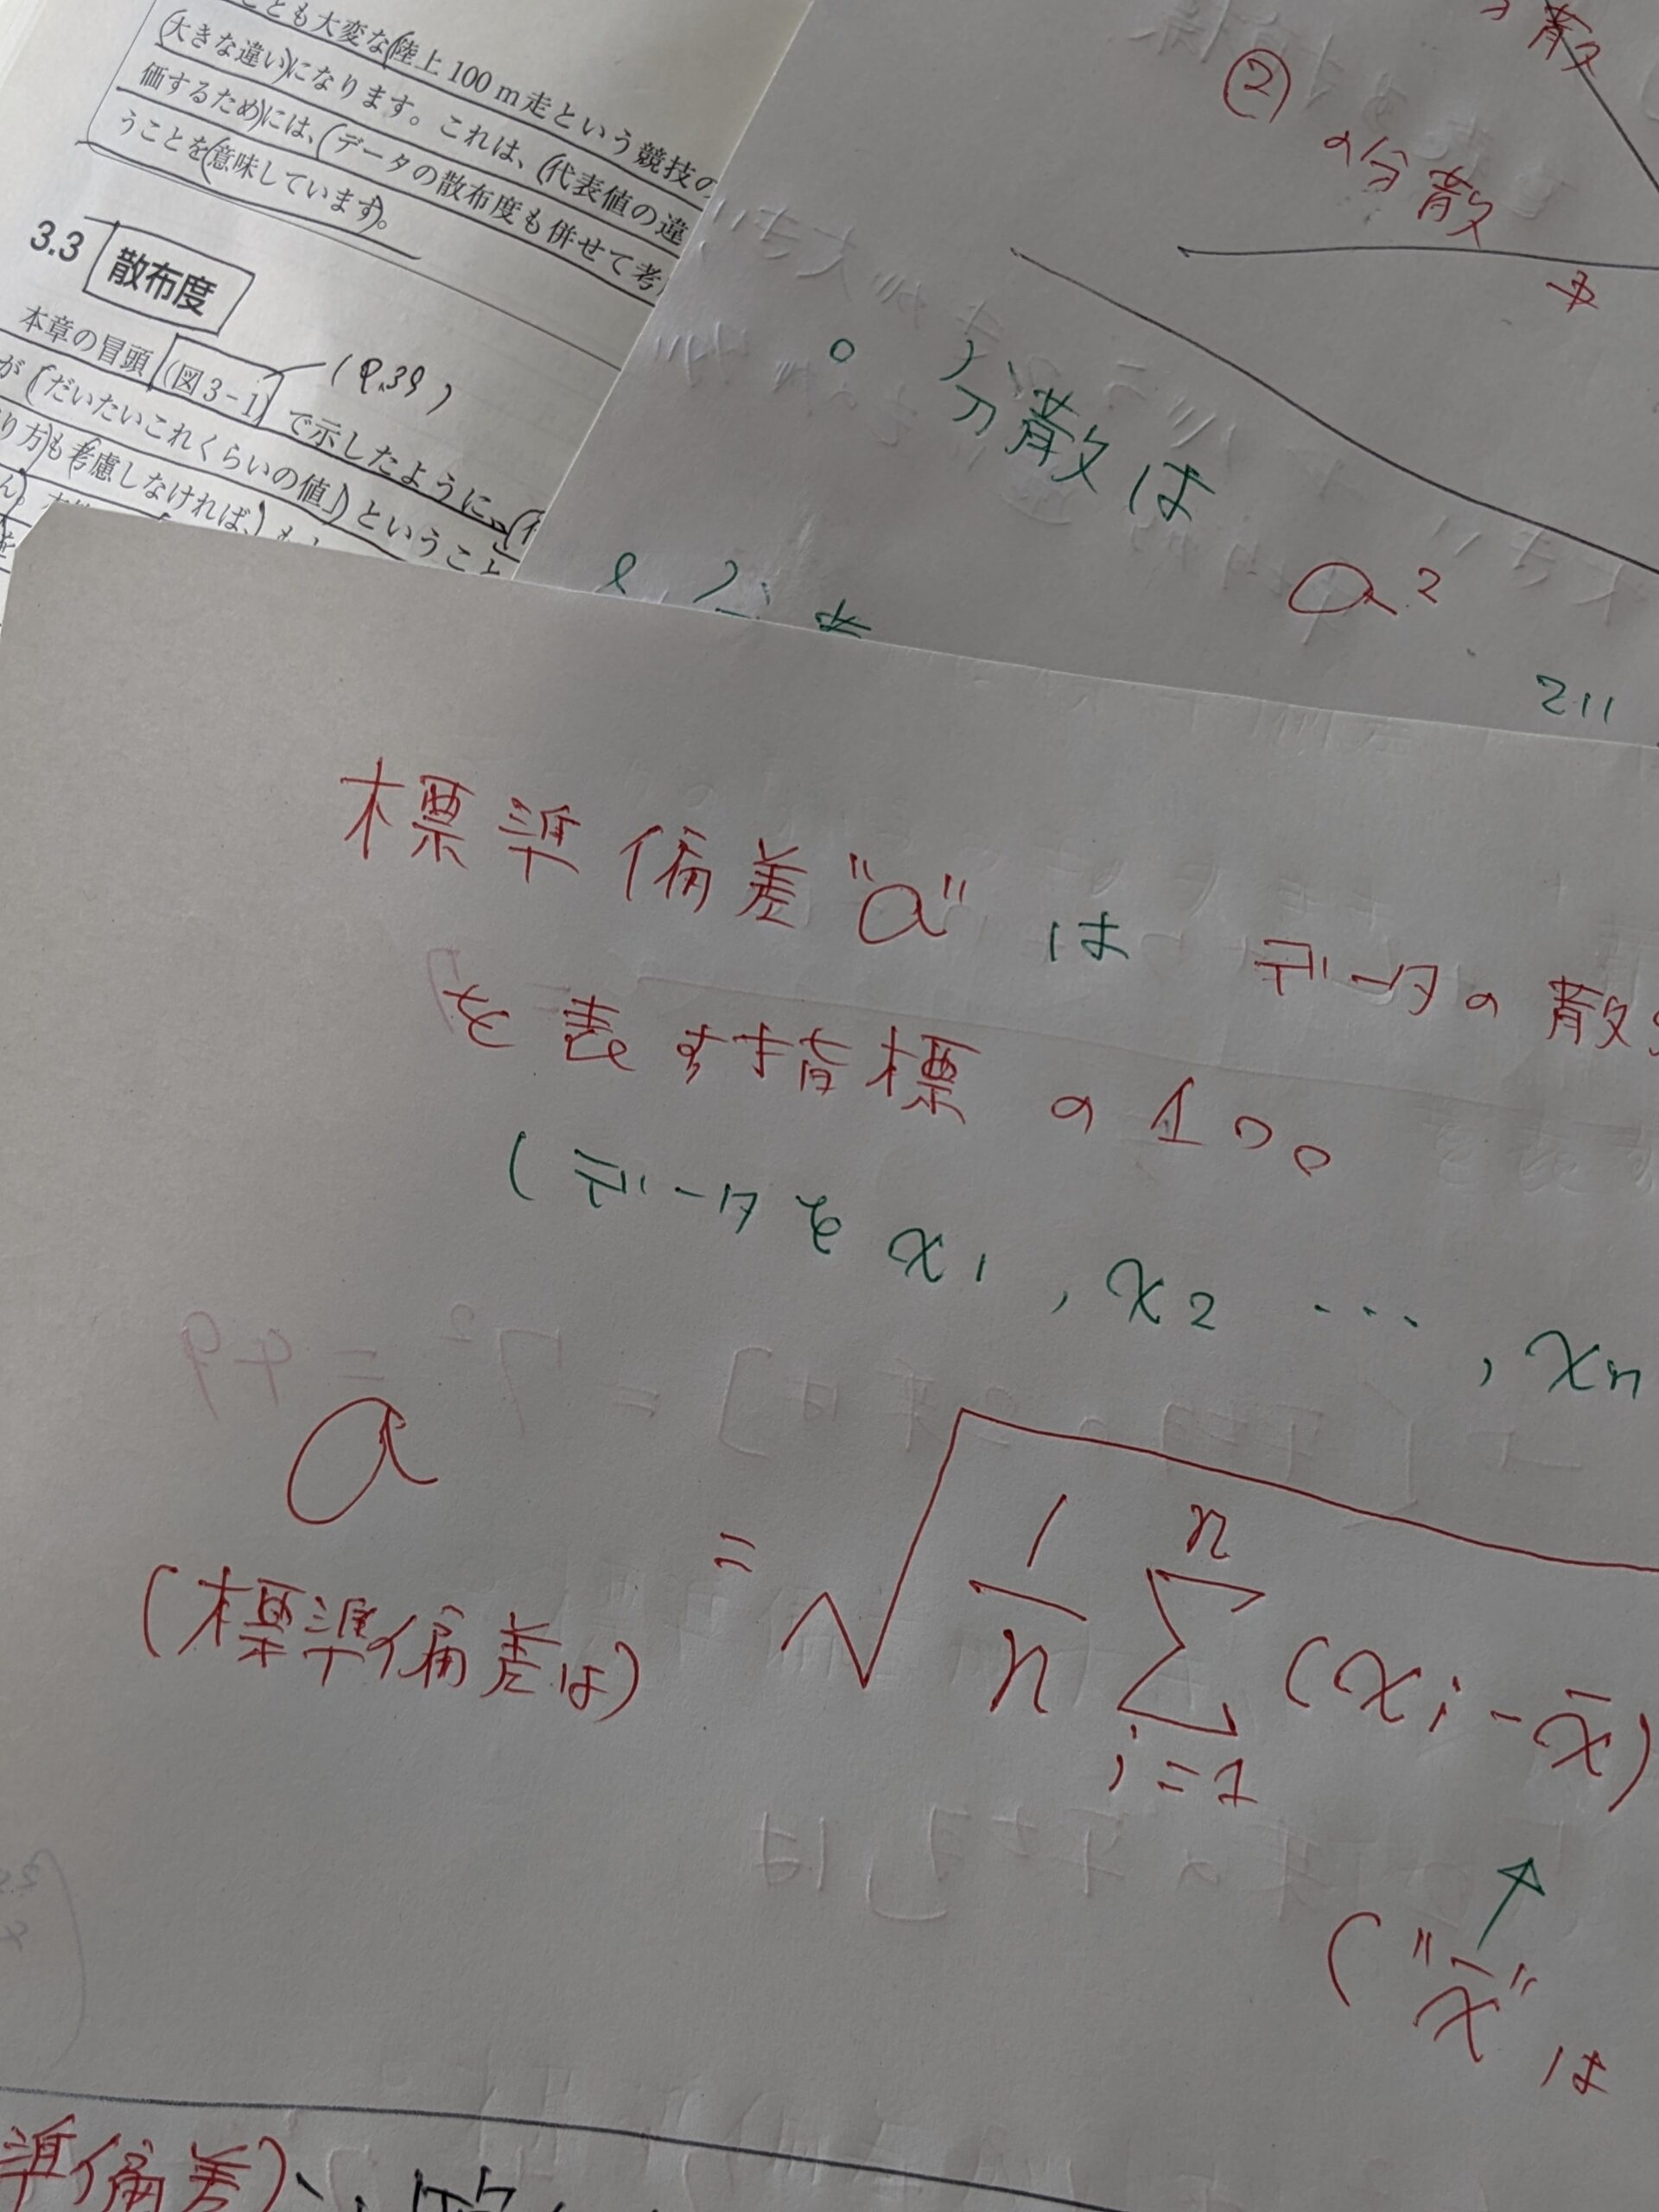 とも大変な(陸上100m走という競技の
(大きな違い)になります。これは、(代表値の違
価するため)には、(データの散布度も併せて考
うことを(意味しています)。
3.3 散布度
本章の冒頭(図3-1)で示したように、
(P.39)
が(「だいたいこれくらいの値」)ということ
り方)も(考慮しなければ、)も
散
②
の分散
。分散は
a²
標準偏差"a"は データの散
を表す指標の1つ。
(データを x1, x2 ⋯, xn
a = √ 1/n n Σ i=1 (xi - x̄)
(標準偏差は)
("x̄"は
準偏差)、